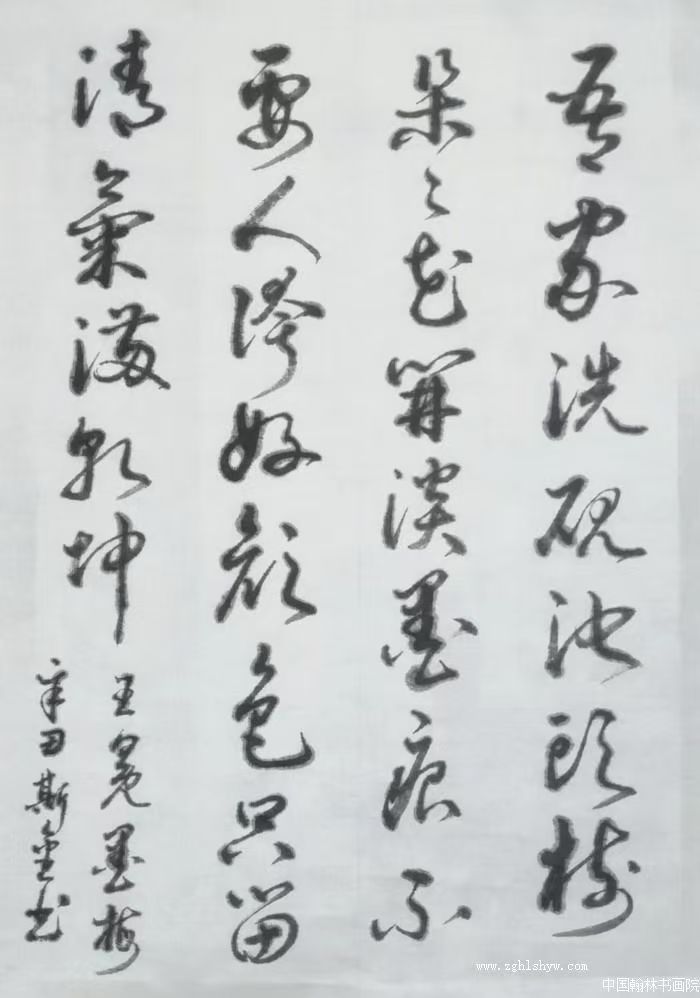 吾家洗硯池頭樹
朵々花開淡墨痕不
要人誇好顏色只留
清氣滿乾坤
王冕墨梅
辛丑斯金书
www.zghlshyw.com
中国翰林书画院